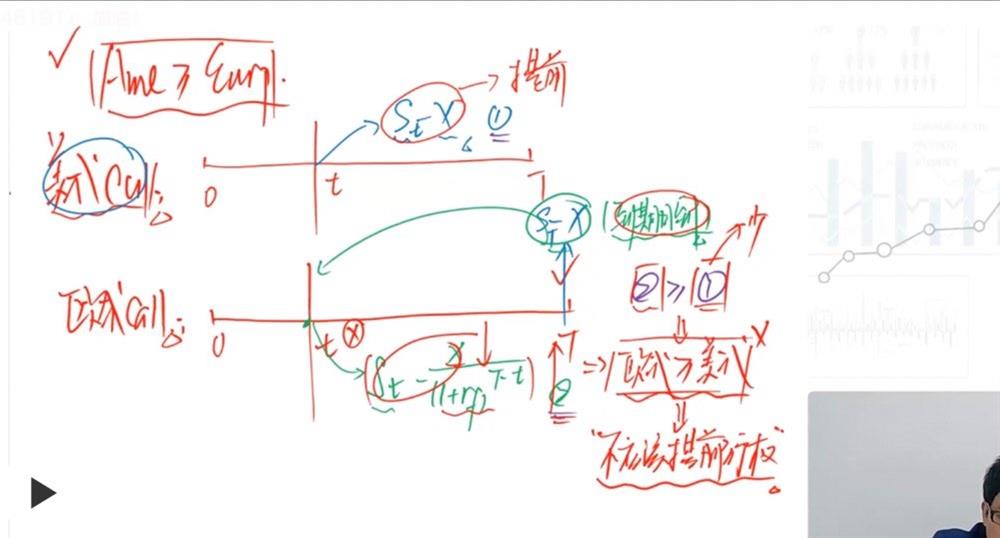 ✓ Ame ≥ Euro.
S_t - X ① → 提前
美式 Call:
0 t T
S_T - X (到期时刻)
② ≥ ① → 少
欧式 Call:
0 t ⓧ T
(S_t - X/(1+rf)^(T-t)) ②
⇒ 欧式 ≥ 美式 X
"不应该提前行权"